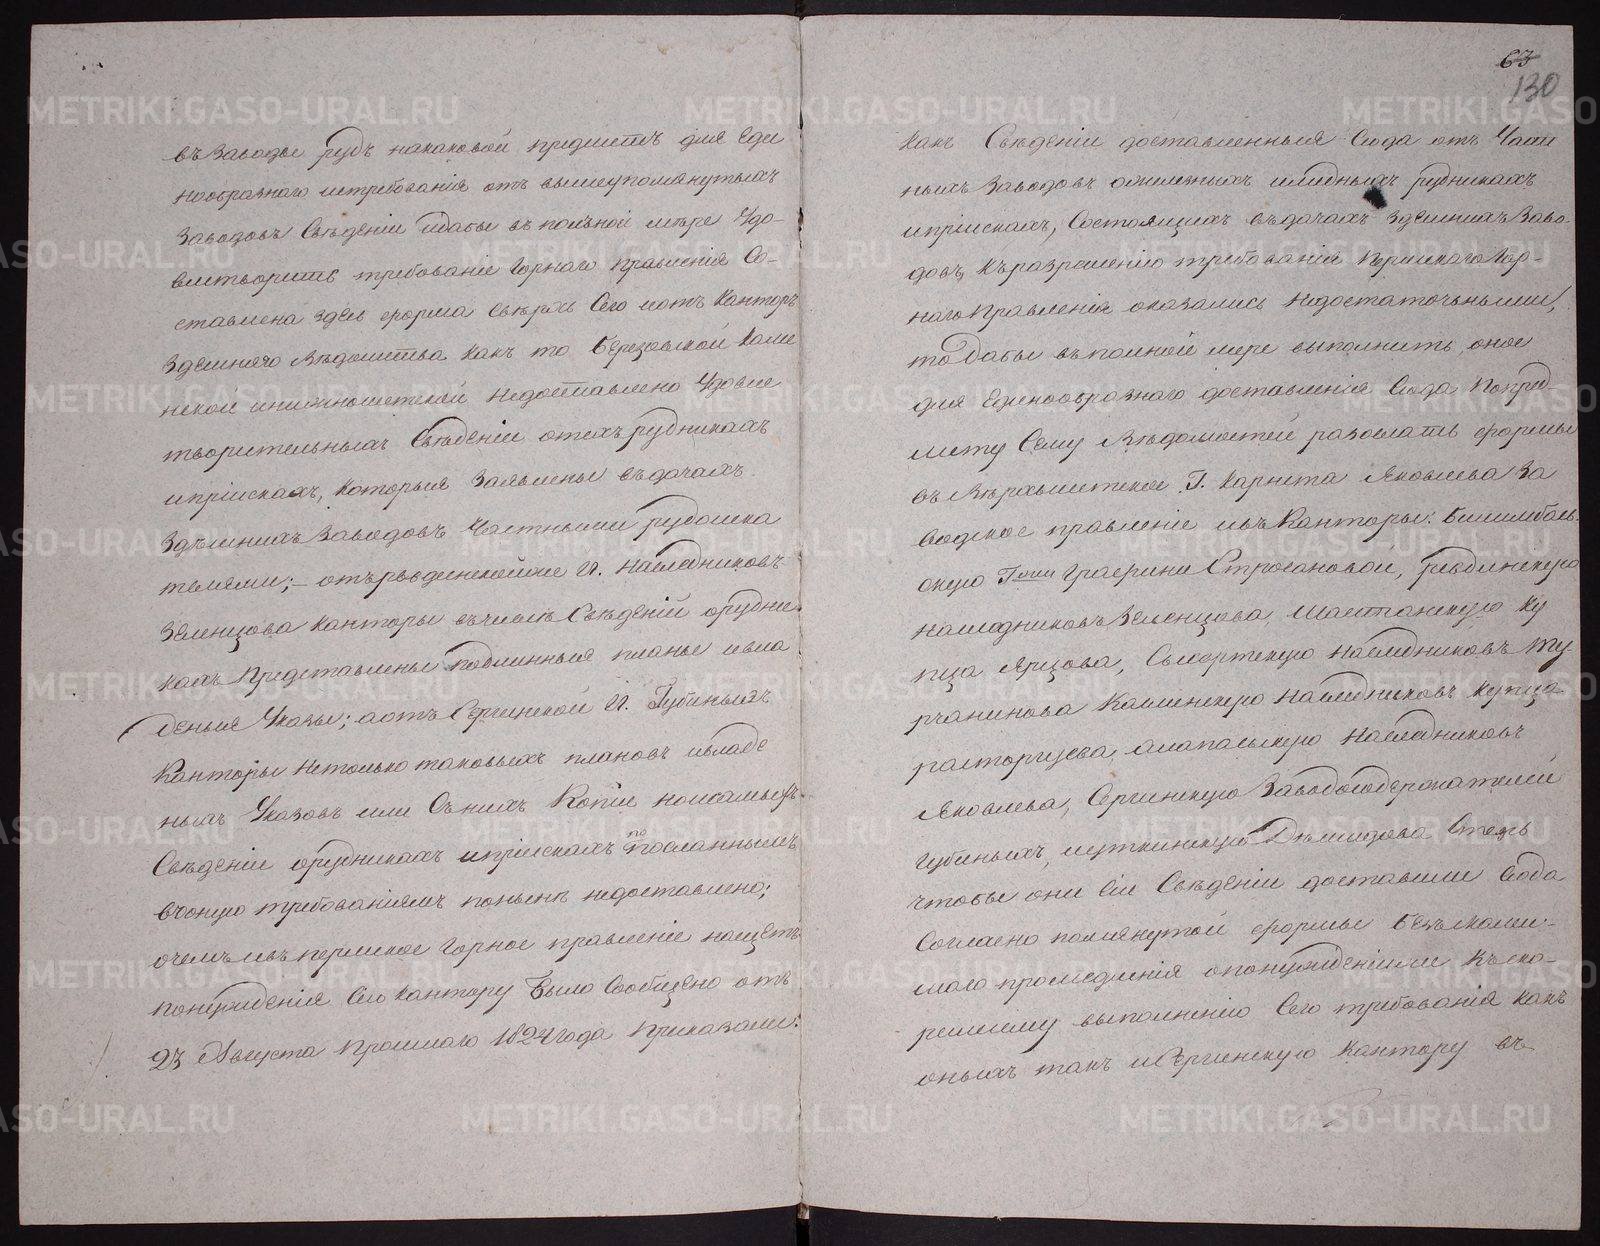 въ заводы рудъ накаковой предметъ для еди
нообразнаго истребованія отъ вышеупомянутыхъ
заводовъ Сведеніи идабы въ полной мере Удо-
влетворить требованіе горнаго правленія Со-
ставлена здесь форма сверхъ Сего иотъ Канторъ
здешняго ведомства какъ то Березовской Каме
нской инижноисетской недоставлено Удовле
творительныхъ Сведеніи отехъ рудникахъ
ипріискахъ, которыя заявлены въдачахъ
здешнихъ заводовъ Частными рудоиска
телями; - отъревдинскойже г. наследниковъ
зеленцова канторы въчисле Сведеній орудни
кахъ представлены подлинныя планы ивла
денныя Указы; аотъ Сергинской г. Губиныхъ
Канторы нетолько таковыхъ плановъ ивладе
ныхъ Указовъ или Съ нихъ Копіи ноисамыхъ
Сведеніи орудникахъ ипріискахъ по посланнымъ
въоную требованіямъ поныне недоставлено;
очемъ ивъ пермское горное правленіе нащетъ
понужденія Сію кантору было Сообщено отъ
23 Августа прошлаго 1824 года приказали:
63
130
какъ Сведеніи доставленныя Сюда отъ Част
ныхъ заводовъ ожелезныхъ имедныхъ рудникахъ
ипріискахъ, Состоящихъ въдачахъ здешнихъ заво-
довъ, къразрешенію требованія пермскаго Гор-
наго правленія оказались недостаточными,
то дабы въполной мере выполнить оное
для единообразнаго доставленія Сюда попред
мету Сему ведомостей разослать формы
въ Верхъисетское Г. Корнета Яковлева за
водское правленіе ивъ Канторы: Билимбаев-
скую Г-жи графини Строгановой, ревдинскую
наследниковъ зеленцова, шайтанскую ку
пца Ярцова, Сысертскую наследниковъ Ту-
рчанинова Каслинскую наследниковъ купца
расторгуева, алапаевскую наследниковъ
Яковлева, Сергинскую заводосодержателей
губиныхъ, иуткинскую Демидова Стемъ
чтобы они Сіи Сведеніи доставили Сюда
Согласно помянутой формы безъмалей-
шаго промедленія опонужденіиже къско-
рейшему выполненію Сего требованія какъ
оныхъ такъ иСергинскую кантору въ